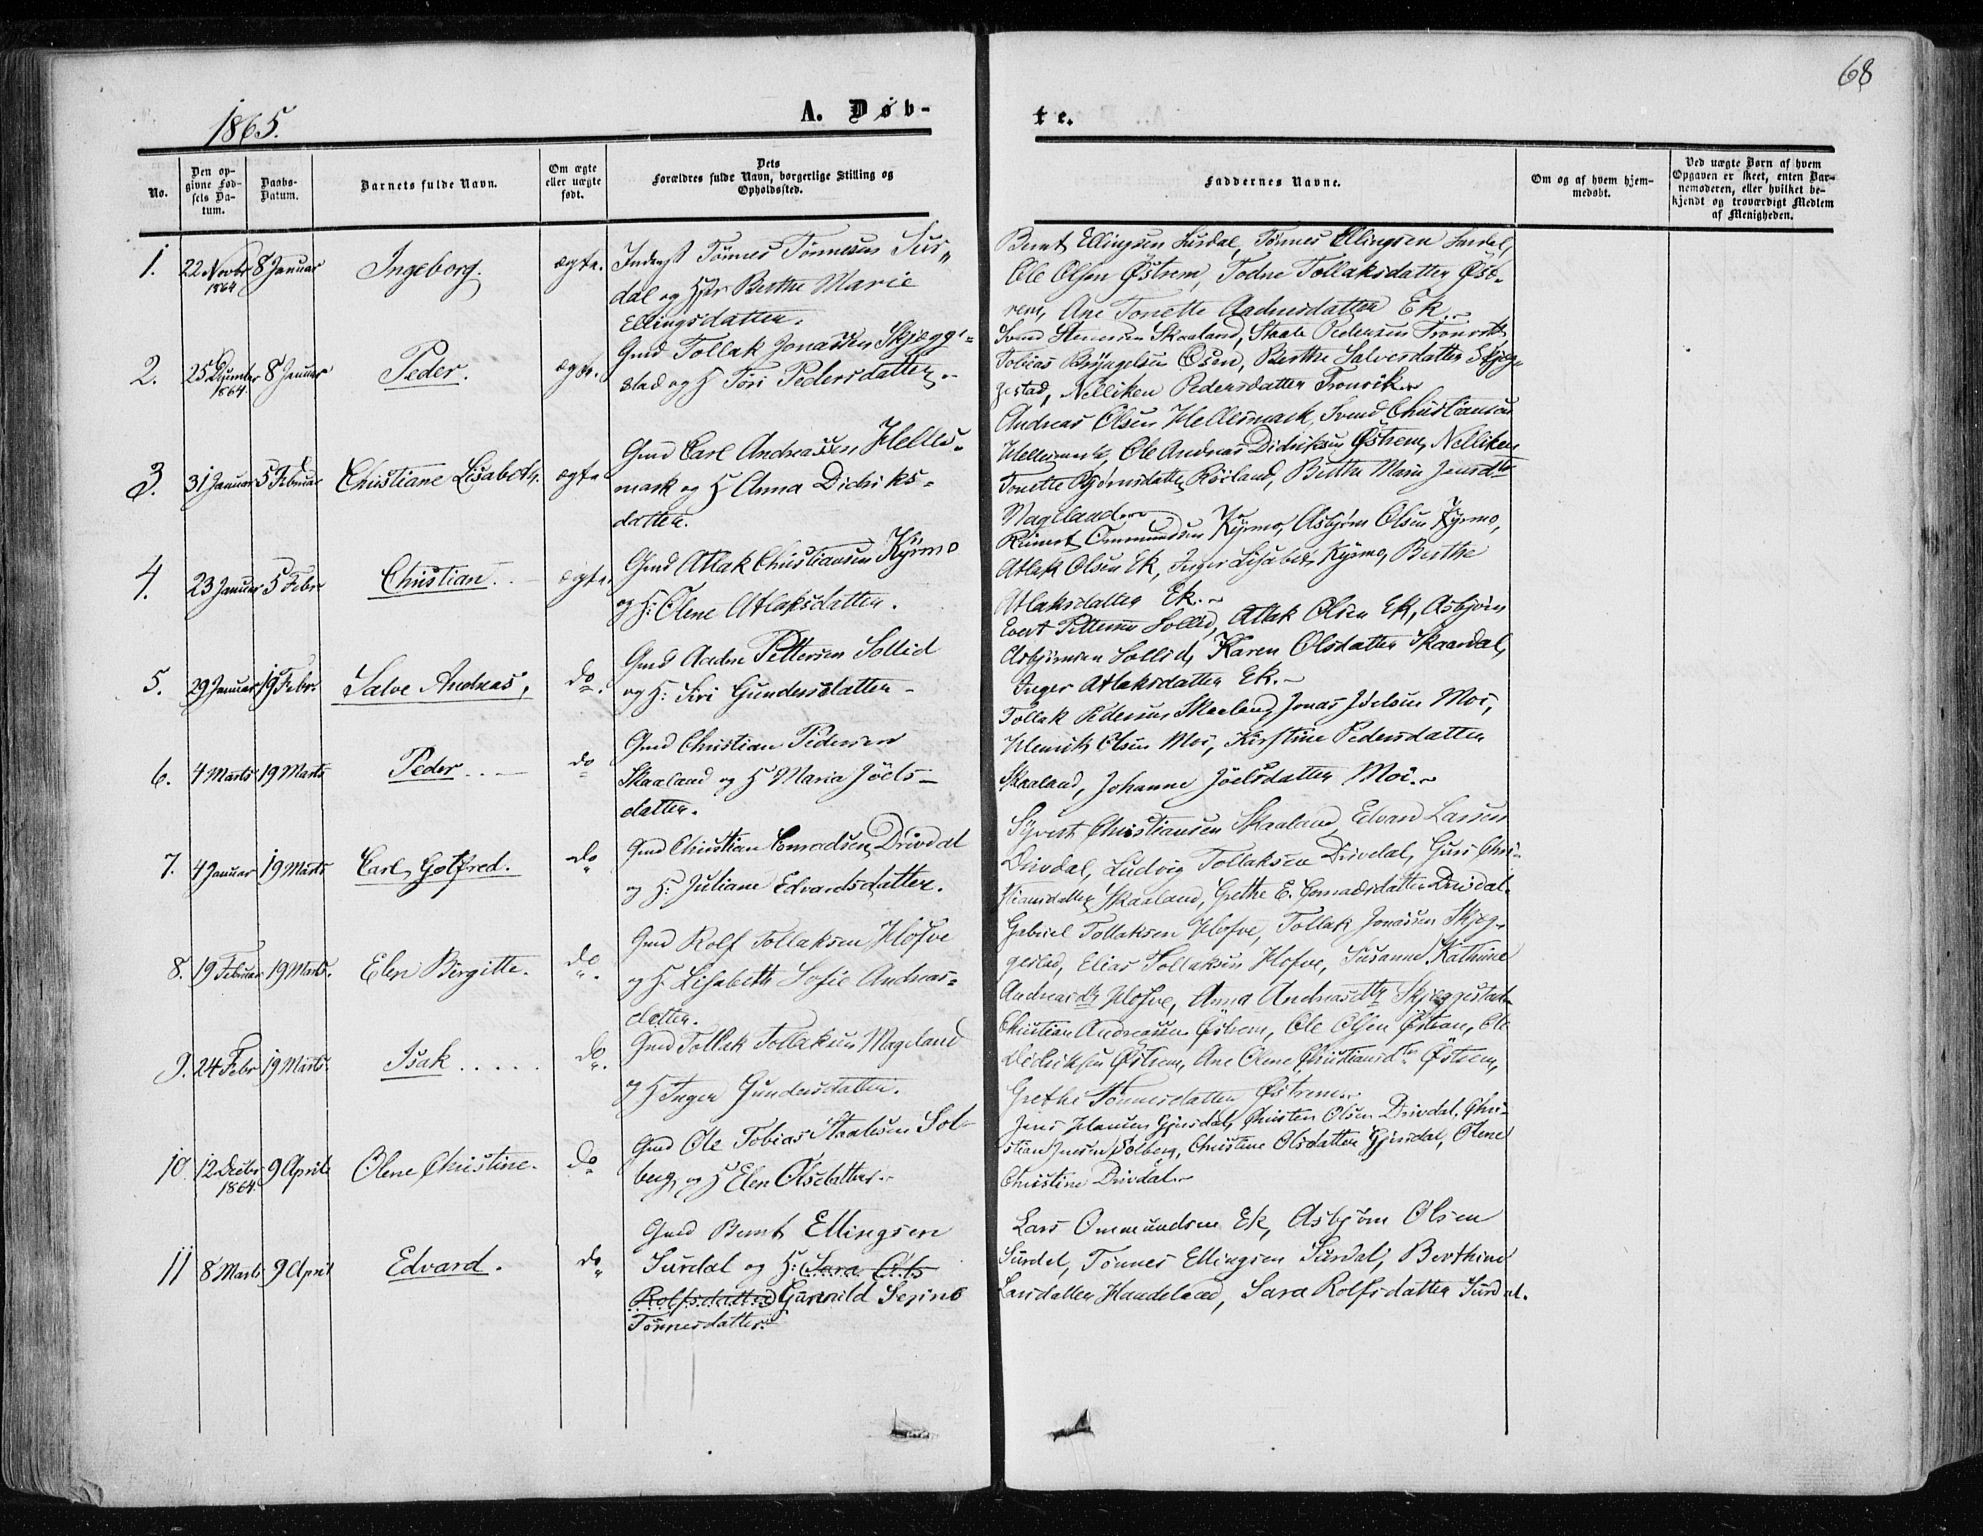 68
1865.
A. Døb-
te.
No.
Den op-
givne Fød-
sels Da-
tum.
Daabs-
Datum.
Barnets fulde Navn.
Om ægte
eller uægte
født.
Dets
Forældres fulde Navn, borgerlige Stilling og
Opholdssted.
Faddernes Navne.
Om og af hvem hjem-
medøbt.
Ved uægte Børn af hvem
Opgaven er skeet, enten Bar-
nemoderen, eller hvilket be-
kjendt og troværdigt Medlem
af Menigheden.
1.
22 Novbr
1864
8 Januar
Ingeborg.
ægte.
Inderst Tønnes Tønnesen Sur-
dal og Hst Berthe Marie
Ellingsdatter.
Bernt Ellingsen Surdal, Tønnes Ellingsen Surdal,
Ole Olsen Østrem, Todne Tollaksdatter Øst-
rem, Ane Tonette Aadnesdatter Ek.
2.
25 December
1864.
8 Januar
Peder.
ægte.
Gmd Tollak Jonassen Skjegge-
stad og H Tori Pedersdatter.
Svend Stenersen Skaaland, Staale Pedersen Tronvik
Tobias Brynjelsen Osen, Berthe Salvesdatter Skjeg-
gestad, Nelliken Pedersdatter Tronvik
3.
31 Januar
5 Februar
Christiane Lisabeth.
ægte
Gmd Carl Andreassen Helles-
mark og H Anna Didriks-
datter.
Andreas Olsen Hellesmark, Svend Christiansen
Hellesmark, Ole Andreas Didriksen Østrem, Nelliken
Tonette Bjørnsdatter Røiland, Berthe Marie Jensdtr
Mageland
4.
23 Januar
5 Febr
Christian.
ægte.
Gmd Atlak Christiansen Kyrmo
og H: Olene Atlaksdatter.
Reinert Ommundsen Kyrmo, Asbjørn Olsen Kyrmo,
Atlak Olsen Ek, Inger Lisabeth Kyrmo, Berthe
Atlaksdatter Ek.
5.
29 Januar
19 Febr
Salve Andreas,
do.
Gmd Aadne Pettersen Sollid
og H: Siri Gundersdatter
Evert Pettersen Sollid, Atlak Olsen Ek, Asbjørn
Asbjørnsen Sollid, Karen Olsdatter Skaardal,
Inger Atlaksdatter Ek.
6.
4 Marts
19 Marts
Peder
do
Gmd Christian Pedersen
Skaaland og H Maria Jöels-
datter.
Tollak Pedersen Skaaland, Jonas Jöelsen Moi,
Henrik Olsen Moi, Kirstine Pedersdatter
Skaaland, Johanne Jöelsdatter Moi.
7.
4 Januar
19 Marts
Carl Gotfred.
do
Gmd Christian Conradsen Drivdal
og H: Juliane Edvardsdatter.
Syvert Christiansen Skaaland, Edvard Larsen
Drivdal, Ludvig Tollaksen Drivdal, Guri Chri-
stiansdatter Skaaland, Grethe E. Conradsdatter Drivdal.
8.
19 Februar
19 Marts.
Elen Birgitte.
do.
Gmd Rolf Tollaksen Hofve
og H. Lisabeth Sofie Andreas-
datter.
Gabriel Tollaksen Hofve, Tollak Jonassen Skjeg-
gestad, Elias Tollaksen Hofve, Susanne Kathrine
Andreasdtr Hofve, Anna Andreasdtr Skjeggestad
9.
24 Febr
19 Marts.
Isak
do.
Gmd Tollak Tollaksen Mageland
og H Inger Gundersdatter.
Christian Andreassen Østrem, Ole Olsen Østrem, Ole
Didriksen Østrem, Ane Olene Christiansdtr Østrem,
Grethe Tønnesdatter Østrem
10
12 Decbr
1864.
9 April
Olene Christine.
do
Gmd Ole Tobias Staalesen Sol-
berg og H Elen Olsdatter.
Jens Hansen Gjersdal, Christen Olsen Drivdal, Chri-
stian Jensen Solberg, Christine Olsdatter Gjersdal, Olene
Christine Drivdal.
11
8 Marts
9 April
Edvard.
do
Gmd Bernt Ellingsen
Surdal og H: Sara Ols
Rolfsdatter Gunnild Serine
Tønnesdatter.
Lars Ommundsen Ek, Asbjørn Olsen
Surdal, Tønnes Ellingsen Surdal, Berthine
Larsdatter Haadeland, Sara Rolfsdatter Surdal.